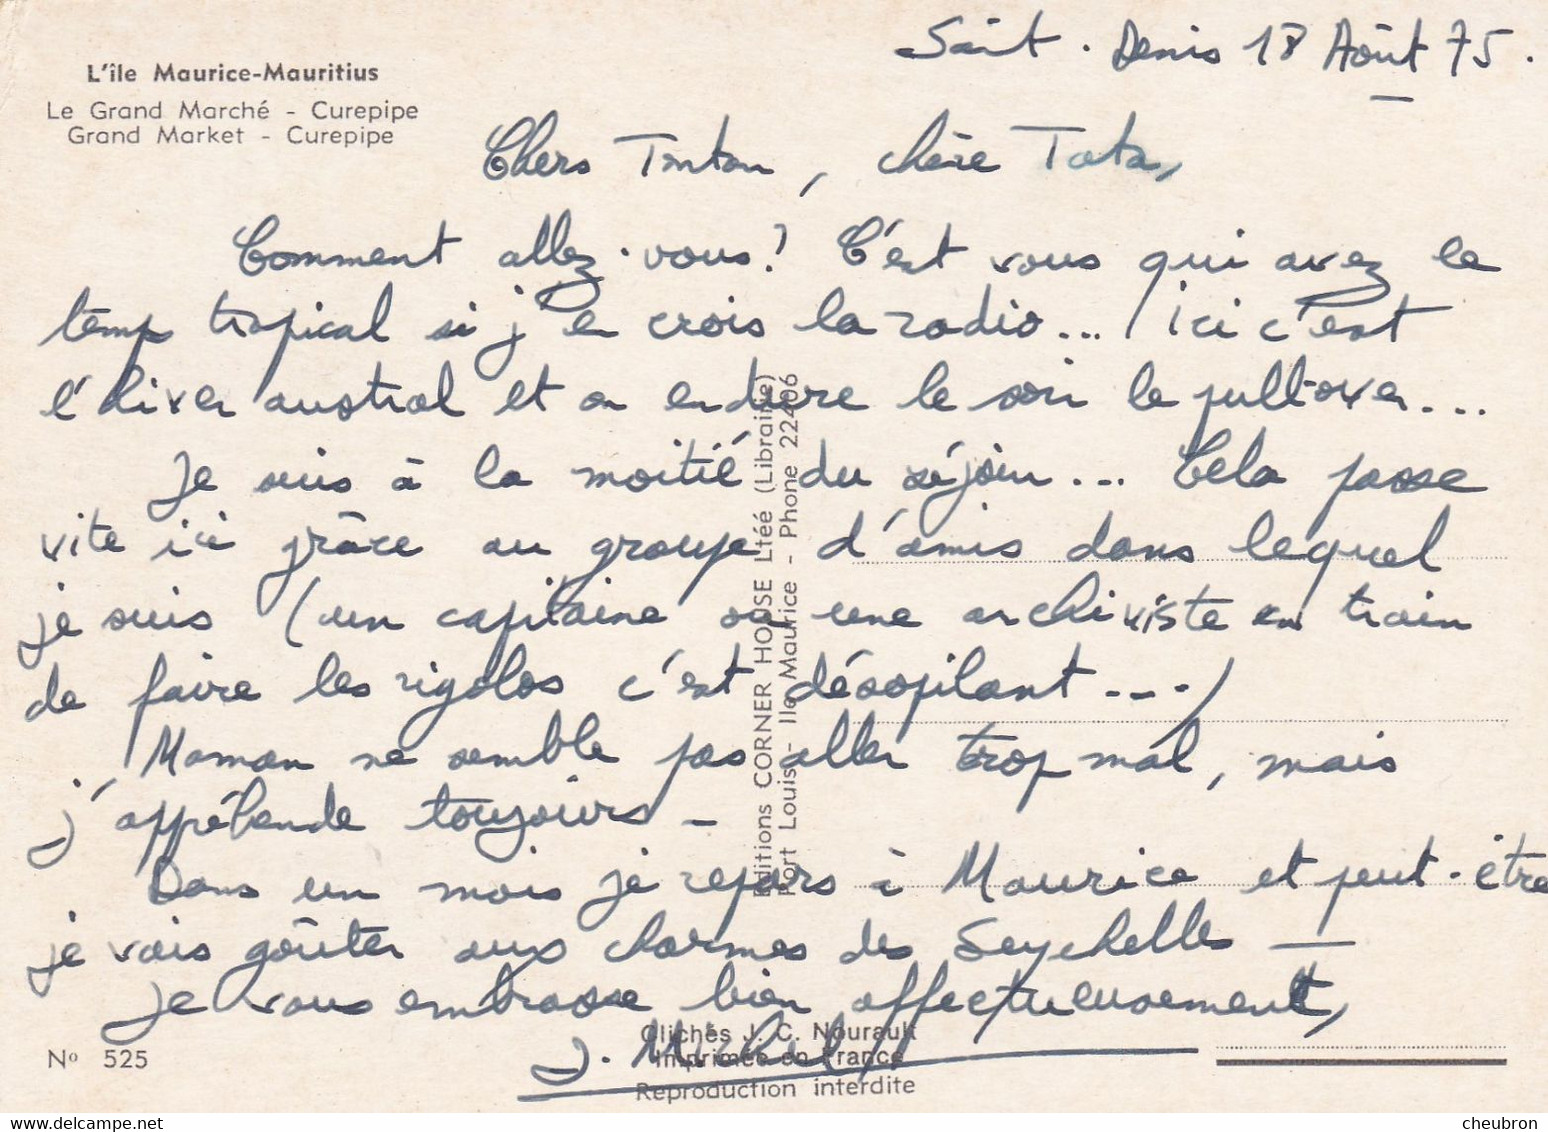 Saint-Denis 18 Août 75.
L'île Maurice-Mauritius
Le Grand Marché - Curepipe
Grand Market - Curepipe
Chers Tonton, chère Tata,
Comment allez-vous? C'est vous qui avez le
temps tropical si j'en crois la radio... (ici c'est
l'hiver austral et on endure le soir le pull-over...
Je suis à la moitié du séjour... Cela passe
vite ici grâce au groupe d'amis dans lequel
je suis (un capitaine ou une archiviste en train
de faire les rigolos c'est désopilant ....)
Maman ne semble pas aller trop mal, mais
j'appréhende toujours -
Dans un mois je repars à Maurice et peut-être
je vais goûter aux charmes des Seychelles —
Je vous embrasse bien affectueusement,
J. Michel
Editions CORNER HOUSE Ltéé (Librairie)
Port Louis - Ile Maurice - Phone 22406
Clichés J. C. Nourault
Imprimée en France
Reproduction interdite
Nº 525
www.delcampe.net
cheubron